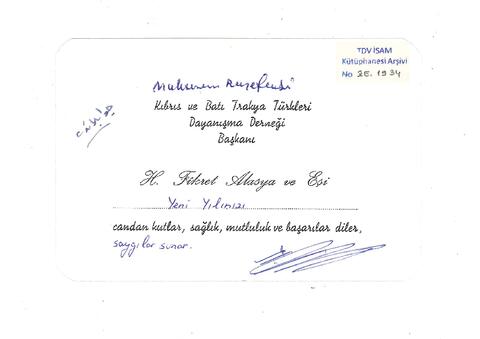 TDV İSAM
Kütüphanesi Arşivi
No 2E.1934
Muhterem
Kıbrıs ve Batı Trakya Türkleri
Dayanışma Derneği
Başkanı
H. Fikret Alasya ve Eşi
Yeni Yılınızı
candan kutlar, sağlık, mutluluk ve başarılar diler,
saygılar sunar.